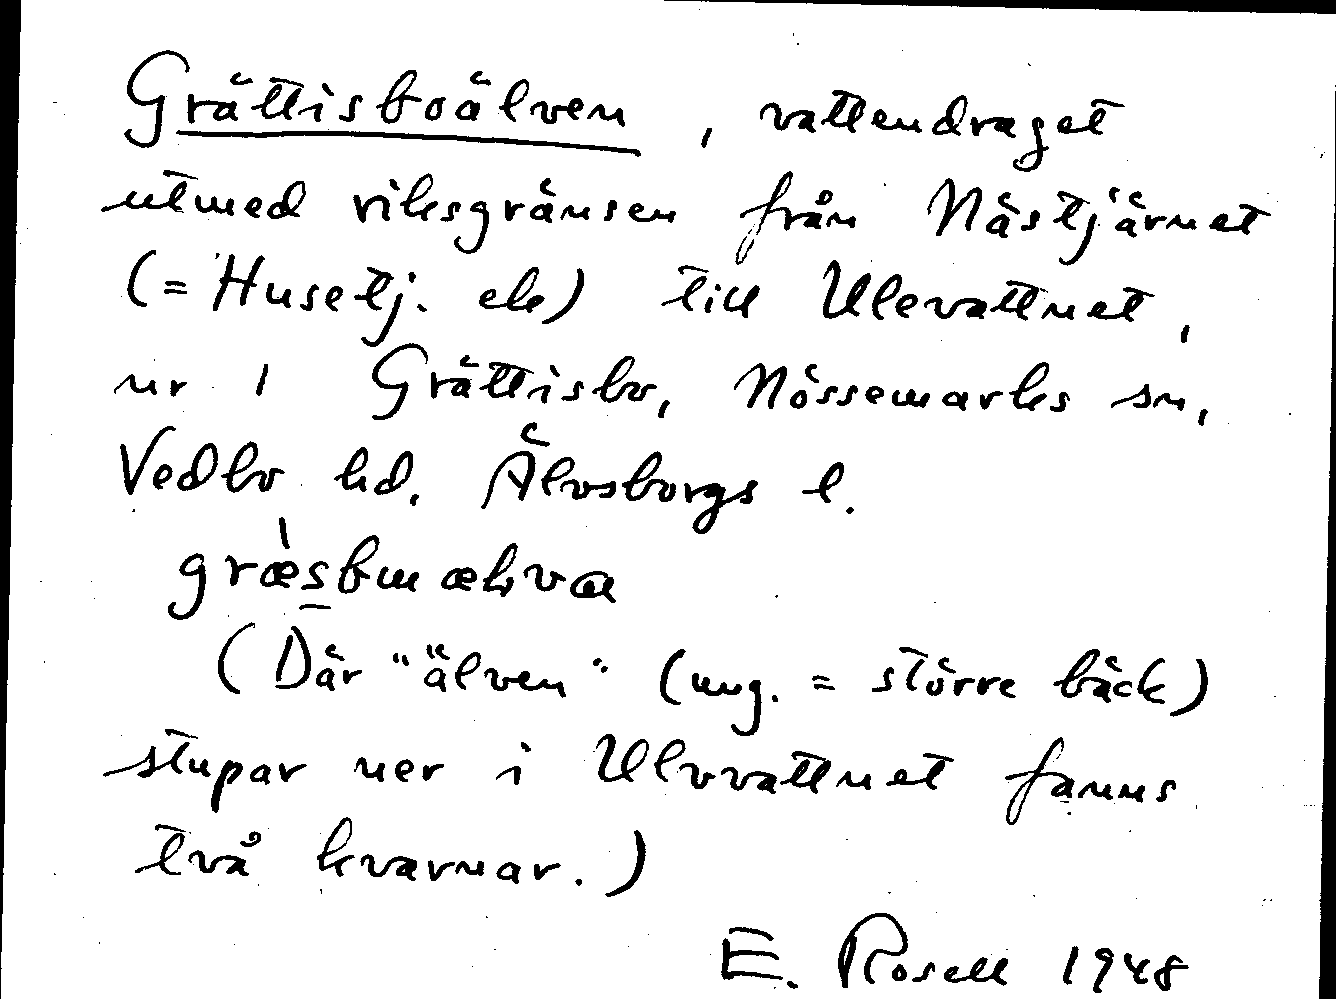 Grättisboälven, vattendraget
utmed riksgränsen från Nästjärnet
(= Husetj. ek) till Ulevattnet,
nr 1 Grättisbo, Nössemarks sn,
Vedbo hd, Älvsborgs l.
(Där "älven" (ung. = större bäck)
stupar ner i Ulvvattnet fanns
två kvarnar.)
E. Rosell 1948